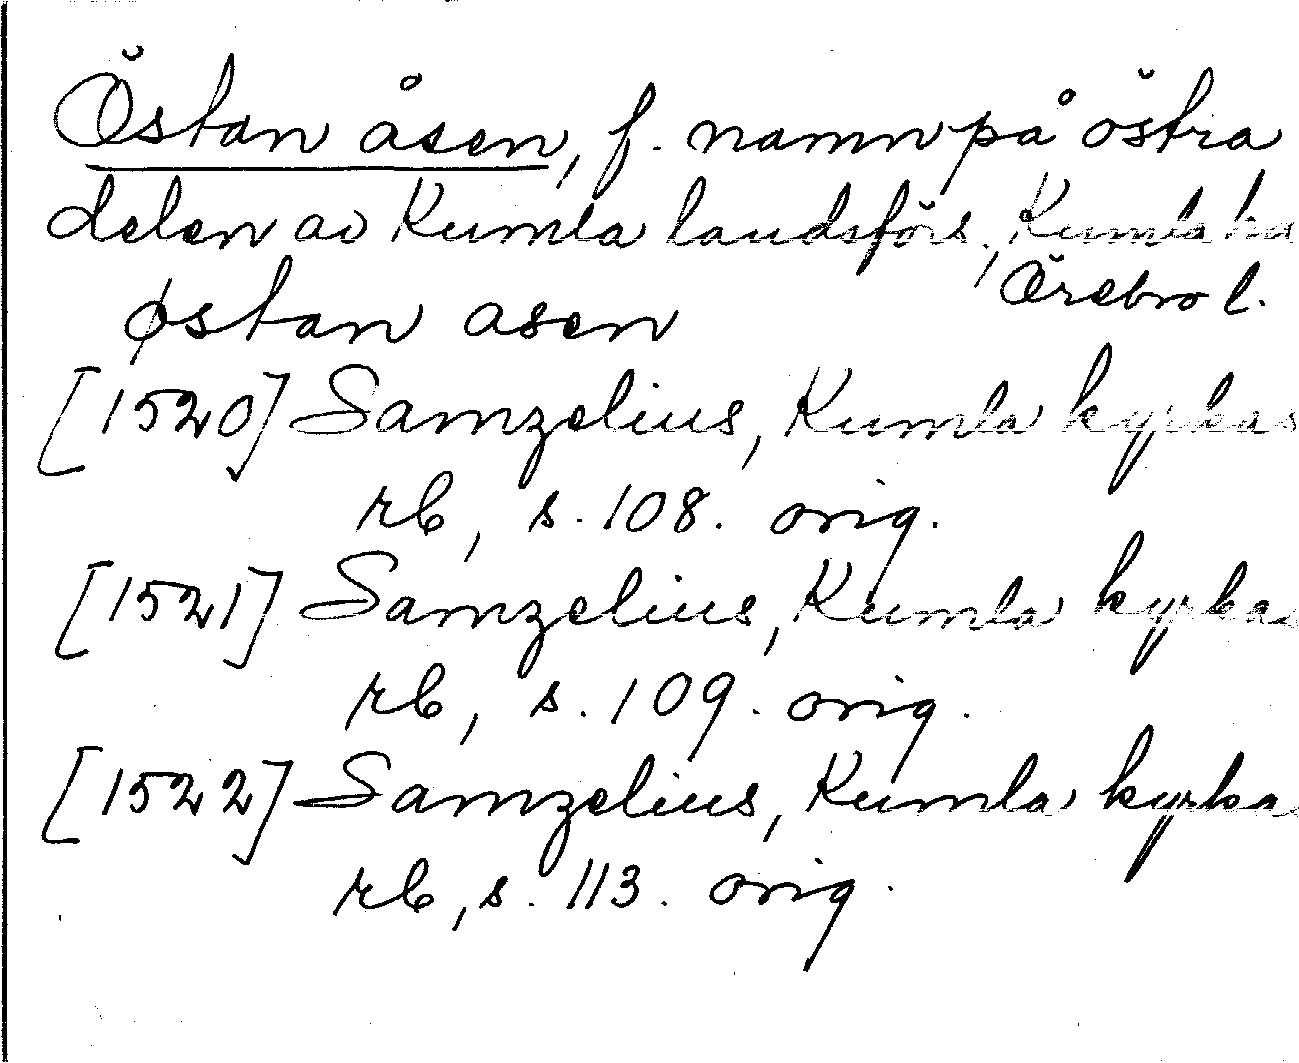 Östan åsen, f. namn på östra
delen av Kumla landsförs., Kumla hd
Örebro l.
østan asen
[1520] Samzelius, Kumla kyrkas
rb, s. 108. orig.
[1521] Samzelius, Kumla kyrkas
rb, s. 109. orig.
[1522] Samzelius, Kumla kyrkas
rb, s. 113. orig.